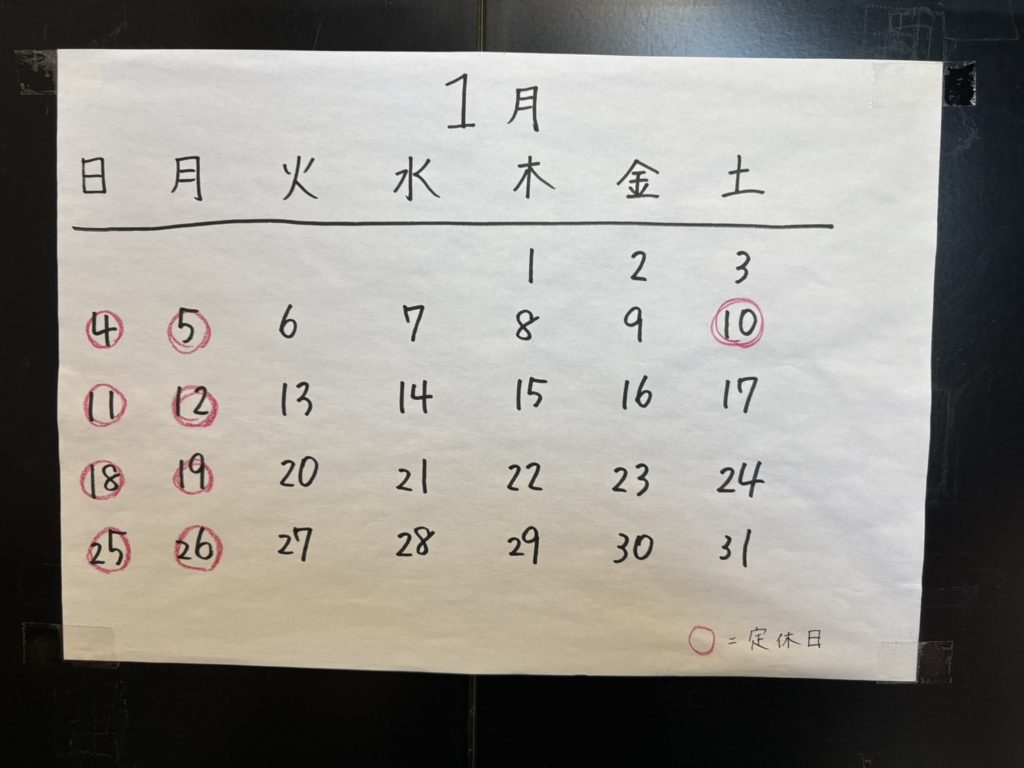 1月
日 月 火 水 木 金 土
1 2 3
4 5 6 7 8 9 10
11 12 13 14 15 16 17
18 19 20 21 22 23 24
25 26 27 28 29 30 31
○=定休日